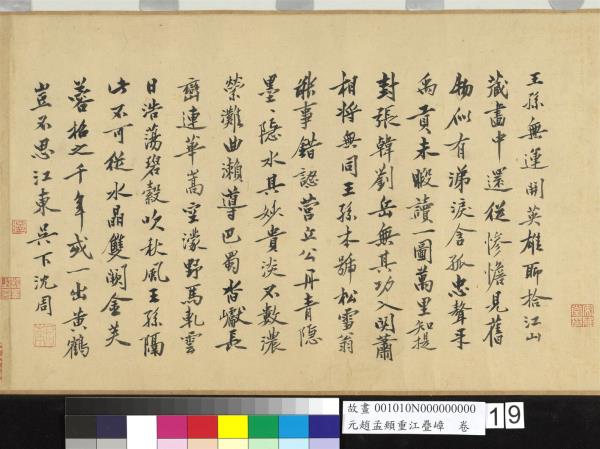 王孫無運開英雄聊拾江山
藏畫中還從慘憺見舊
物似有涕淚含孤忠聲采
禹貢未暇讀一圖萬里知提
封張韓劉岳無其功入關蕭
相將無同王孫本號松雪翁
能事錯認營丘公丹青隱
墨〻隱水其妙貴淡不數濃
縈灘曲瀨導巴蜀杳巘長
巒連華嵩空濛野馬軋雲
日浩蕩碧縠吹秋風王孫隔
此不可從水晶雙闕金芙
蓉招之千年或一出黃鶴
豈不思江東吳下沈周
故畫 001010N000000000
元趙孟頫重江疊嶂 卷
19